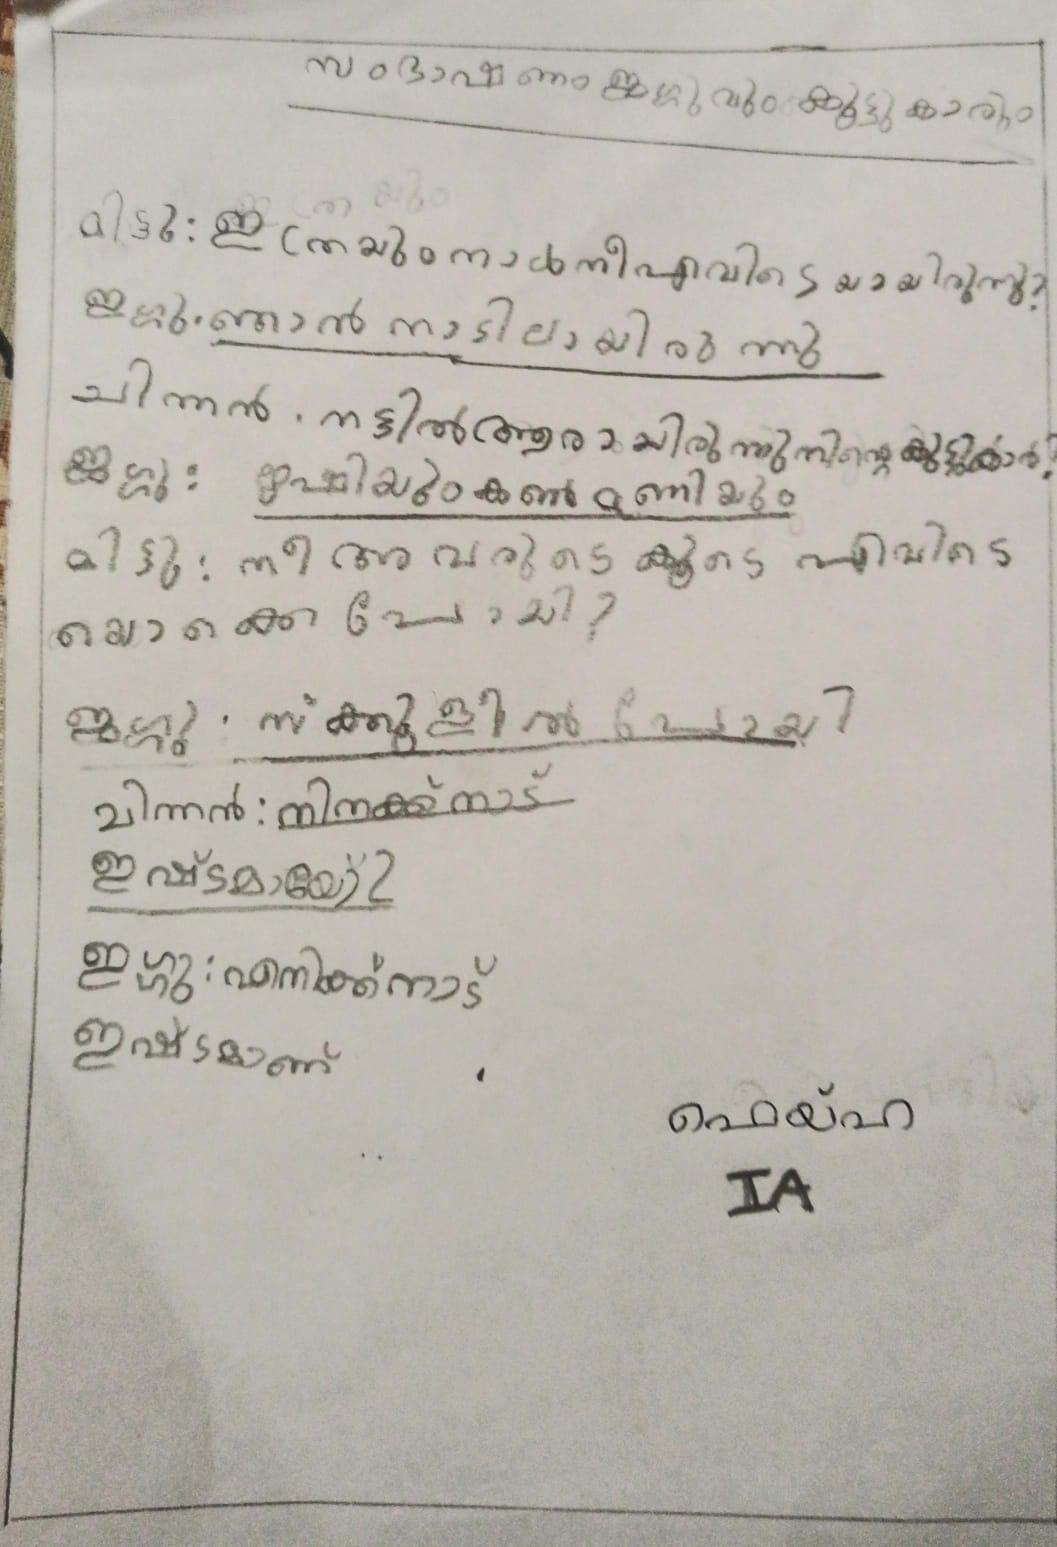 സംഭാഷണം ഇഗ്ഗുവും കൂട്ടുകാരും
മിട്ടു: ഇത്രയും നാൾ നീ എവിടെയായിരുന്നു?
ഇഗ്ഗു. ഞാൻ നാട്ടിലായിരുന്നു
ചിന്നൻ. നട്ടിൽ ആരായിരുന്നു നിന്റെ കൂട്ടുകാർ?
ഇഗ്ഗു: കൺമണിയും
മിട്ടു: നീ അവരുടെ കൂടെ എവിടെ
യൊക്കെ പോയി?
ഇഗ്ഗു: സ്ക്കൂളിൽ പോയി
ചിന്നൻ: നിനക്ക് നാട്
ഇഷ്ടമായോ?
ഇഗ്ഗു: എനിക്ക് നാട്
ഇഷ്ടമാണ്
ഫെയ്ഹ
IA